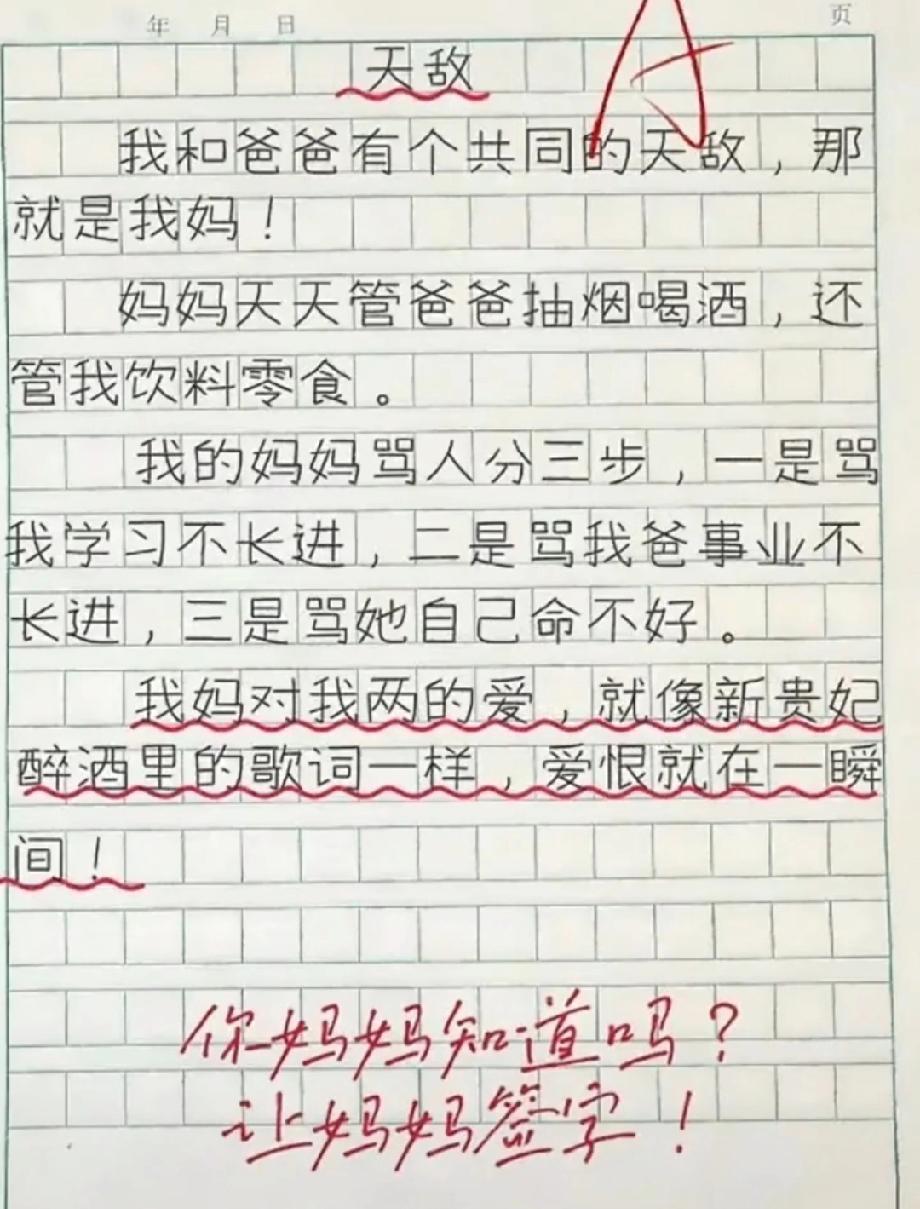 年 月 日 页
天敌 A
我和爸爸有个共同的天敌，那
就是我妈！
妈妈天天管爸爸抽烟喝酒，还
管我饮料零食。
我的妈妈骂人分三步，一是骂
我学习不长进，二是骂我爸事业不
长进，三是骂她自己命不好。
我妈对我两的爱，就像新贵妃
醉酒里的歌词一样，爱恨就在一瞬
间！
你妈妈知道吗？
让妈妈签字！